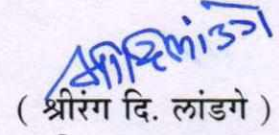 ( श्रीरंग दि. लांडगे )